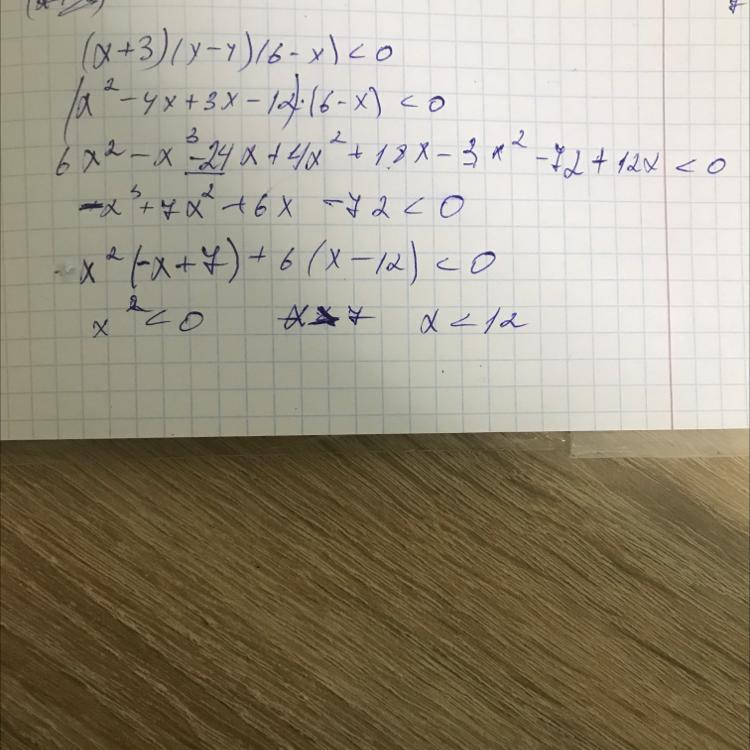 (x+3)(x-4)(6-x)<0
(x²-4x+3x-12)·(6-x)<0
6x²-x³-24x+4x²+18x-3x²-72+12x<0
-x³+7x²+6x-72<0
x²(-x+7)+6(x-12)<0
x²<0 x<12